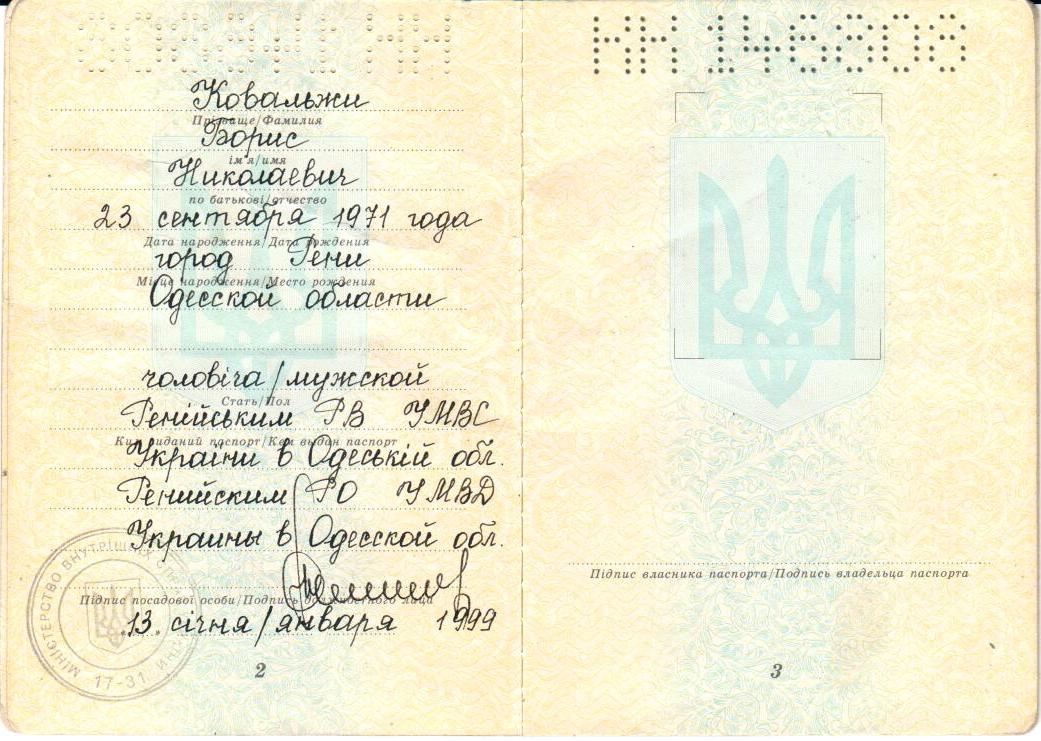 Ковальжи
Прізвище/Фамилия
Борис
ім'я/имя
Николаевич
по батькові/отчество
23 сентября 1971 года
Дата народження/Дата рождения
город Рени
Місце народження/Место рождения
Одесской области
чоловіча/мужской
Стать/Пол
Ренійським РВ УМВС
Ким виданий паспорт/Кем выдан паспорт
України в Одеській обл.
Ренийским РО УМВД
Украины в Одесской обл.
Підпис посадової особи/Подпись должностного лица
13 січня/января 1999
МІНІСТЕРСТВО ВНУТРІШНІХ СПРАВ
17-31
2
КН 146808
Підпис власника паспорта/Подпись владельца паспорта
3